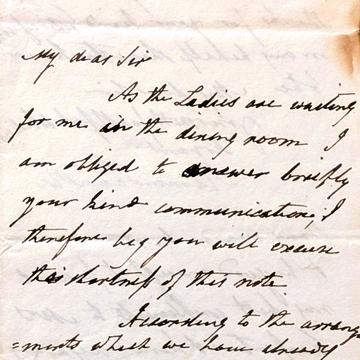 My dear Sir
As the Ladies are waiting
for me in the dining room I
am obliged to answer briefly
your kind communication, I
therefore beg you will excuse
this shortness of this note.
According to the arrange
=ments which we have already